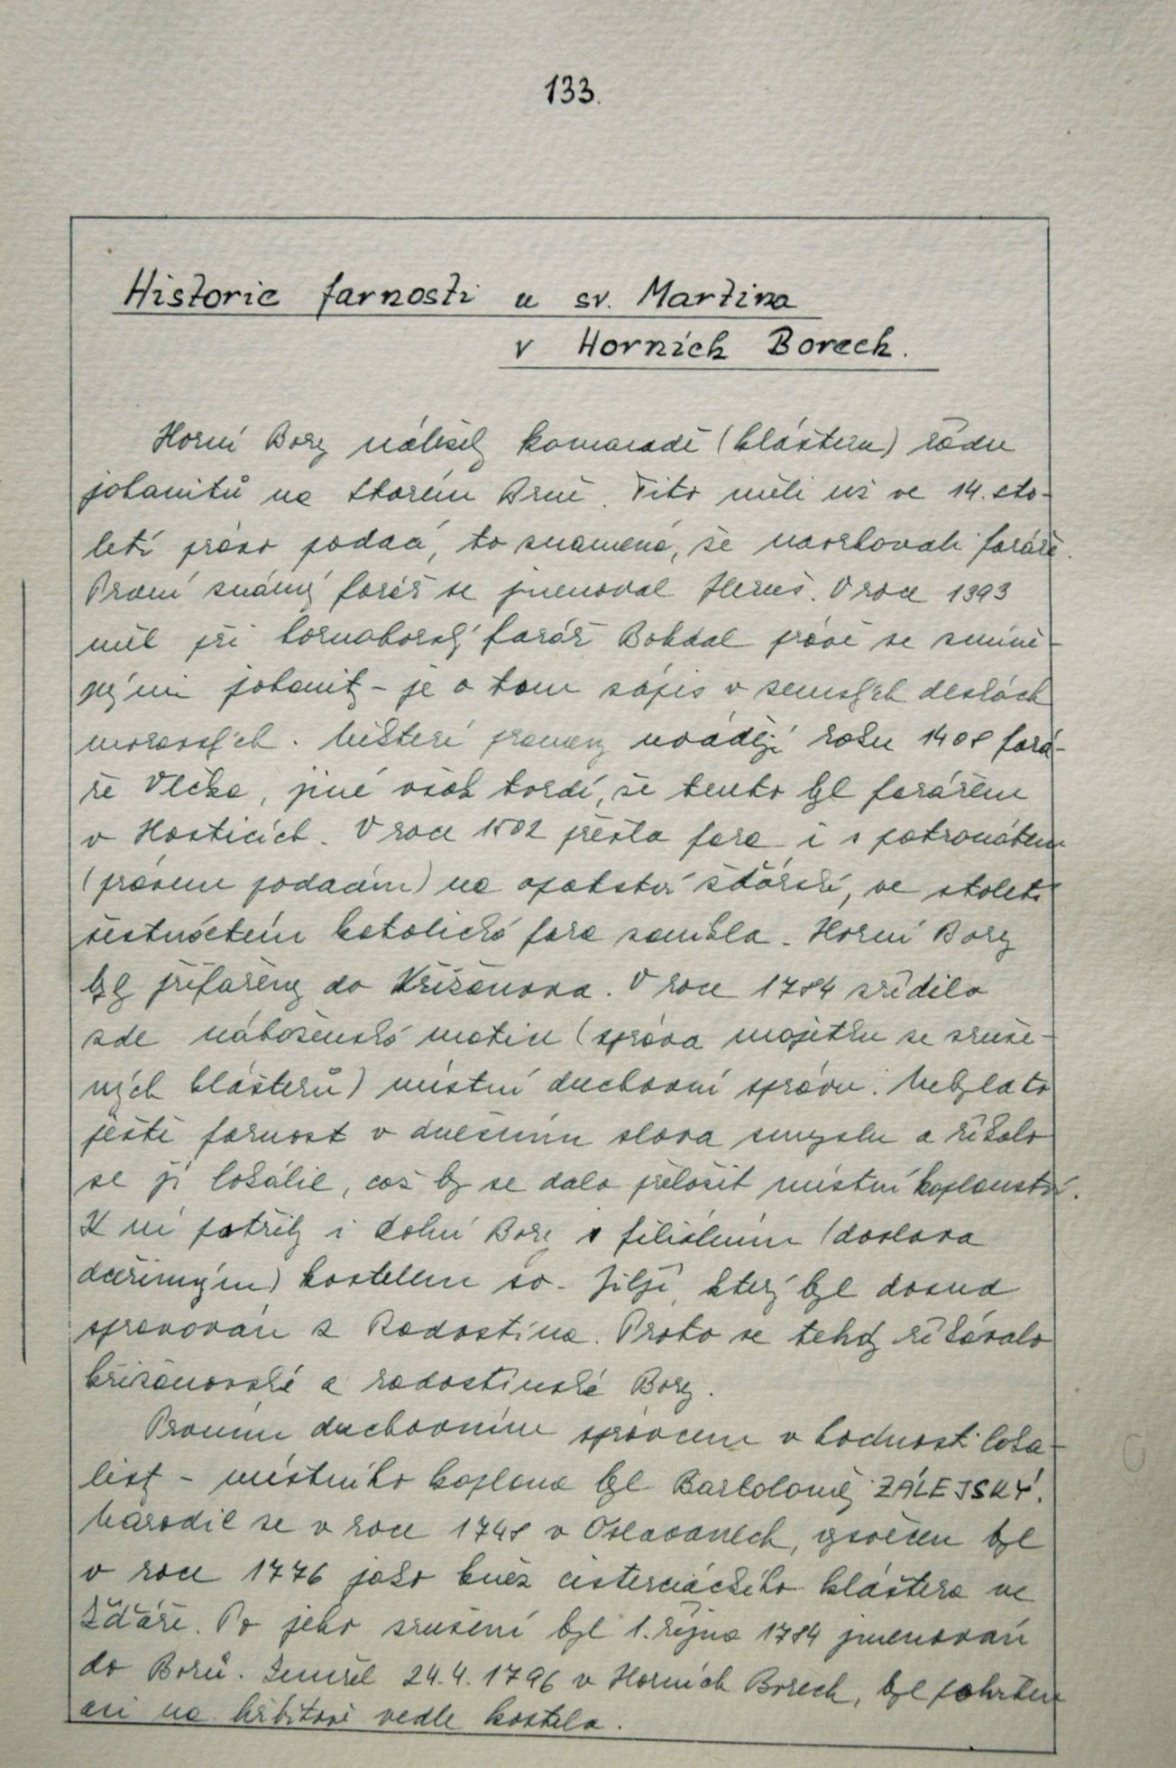 133.
Historie farnosti u sv. Martina
v Horních Borech.
Horní Bory náležely komendě (klášteru) řádu
johanitů na Starém Brně. Tito měli už ve 14. sto-
letí právo podací, to znamená, že navrhovali faráře.
První známý farář se jmenoval Heruš. V roce 1393
měl při hornoborský farář Bohdal právě se zmíně-
nými johanity - je o tom zápis v zemských deskách
moravských. Někteří prameny uvádějí roku 1408 fará-
ře Vlčka, jiné však tvrdí, že tento byl farářem
v Hosticích. V roce 1502 přešla fara i s patronátem
(právem podacím) na opatství žďárské, ve století
šestnáctém katolická fara zanikla. Horní Bory
byly přifařeny do Křižanova. V roce 1784 zřídila
zde náboženská matice (správa majetku ze zruše-
ných klášterů) místní duchovní správu. Nebyla to
ještě farnost v dnešním slova smyslu a říkalo
se jí lokálie, což by se dalo přeložit místní kaplanství.
K ní patřily i Dolní Bory s filiálním (doslova
dceřinným) kostelem sv. Jiljí, který byl dosud
spravován z Radostína. Proto se tehdy říkávalo
křižanovské a radostínské Bory.
Prvním duchovním správcem v hodnosti loka-
listy - místního kaplana byl Bartoloměj ZÁLEJSKÝ.
Narodil se v roce 1748 v Oslavanech, vysvěcen byl
v roce 1776 jako kněz cisterciáckého kláštera ve
Žďáře. Po jeho zrušení byl 1. října 1784 jmenován
do Borů. Zemřel 24.4.1796 v Horních Borech, byl pohřben
asi na hřbitově vedle kostela.